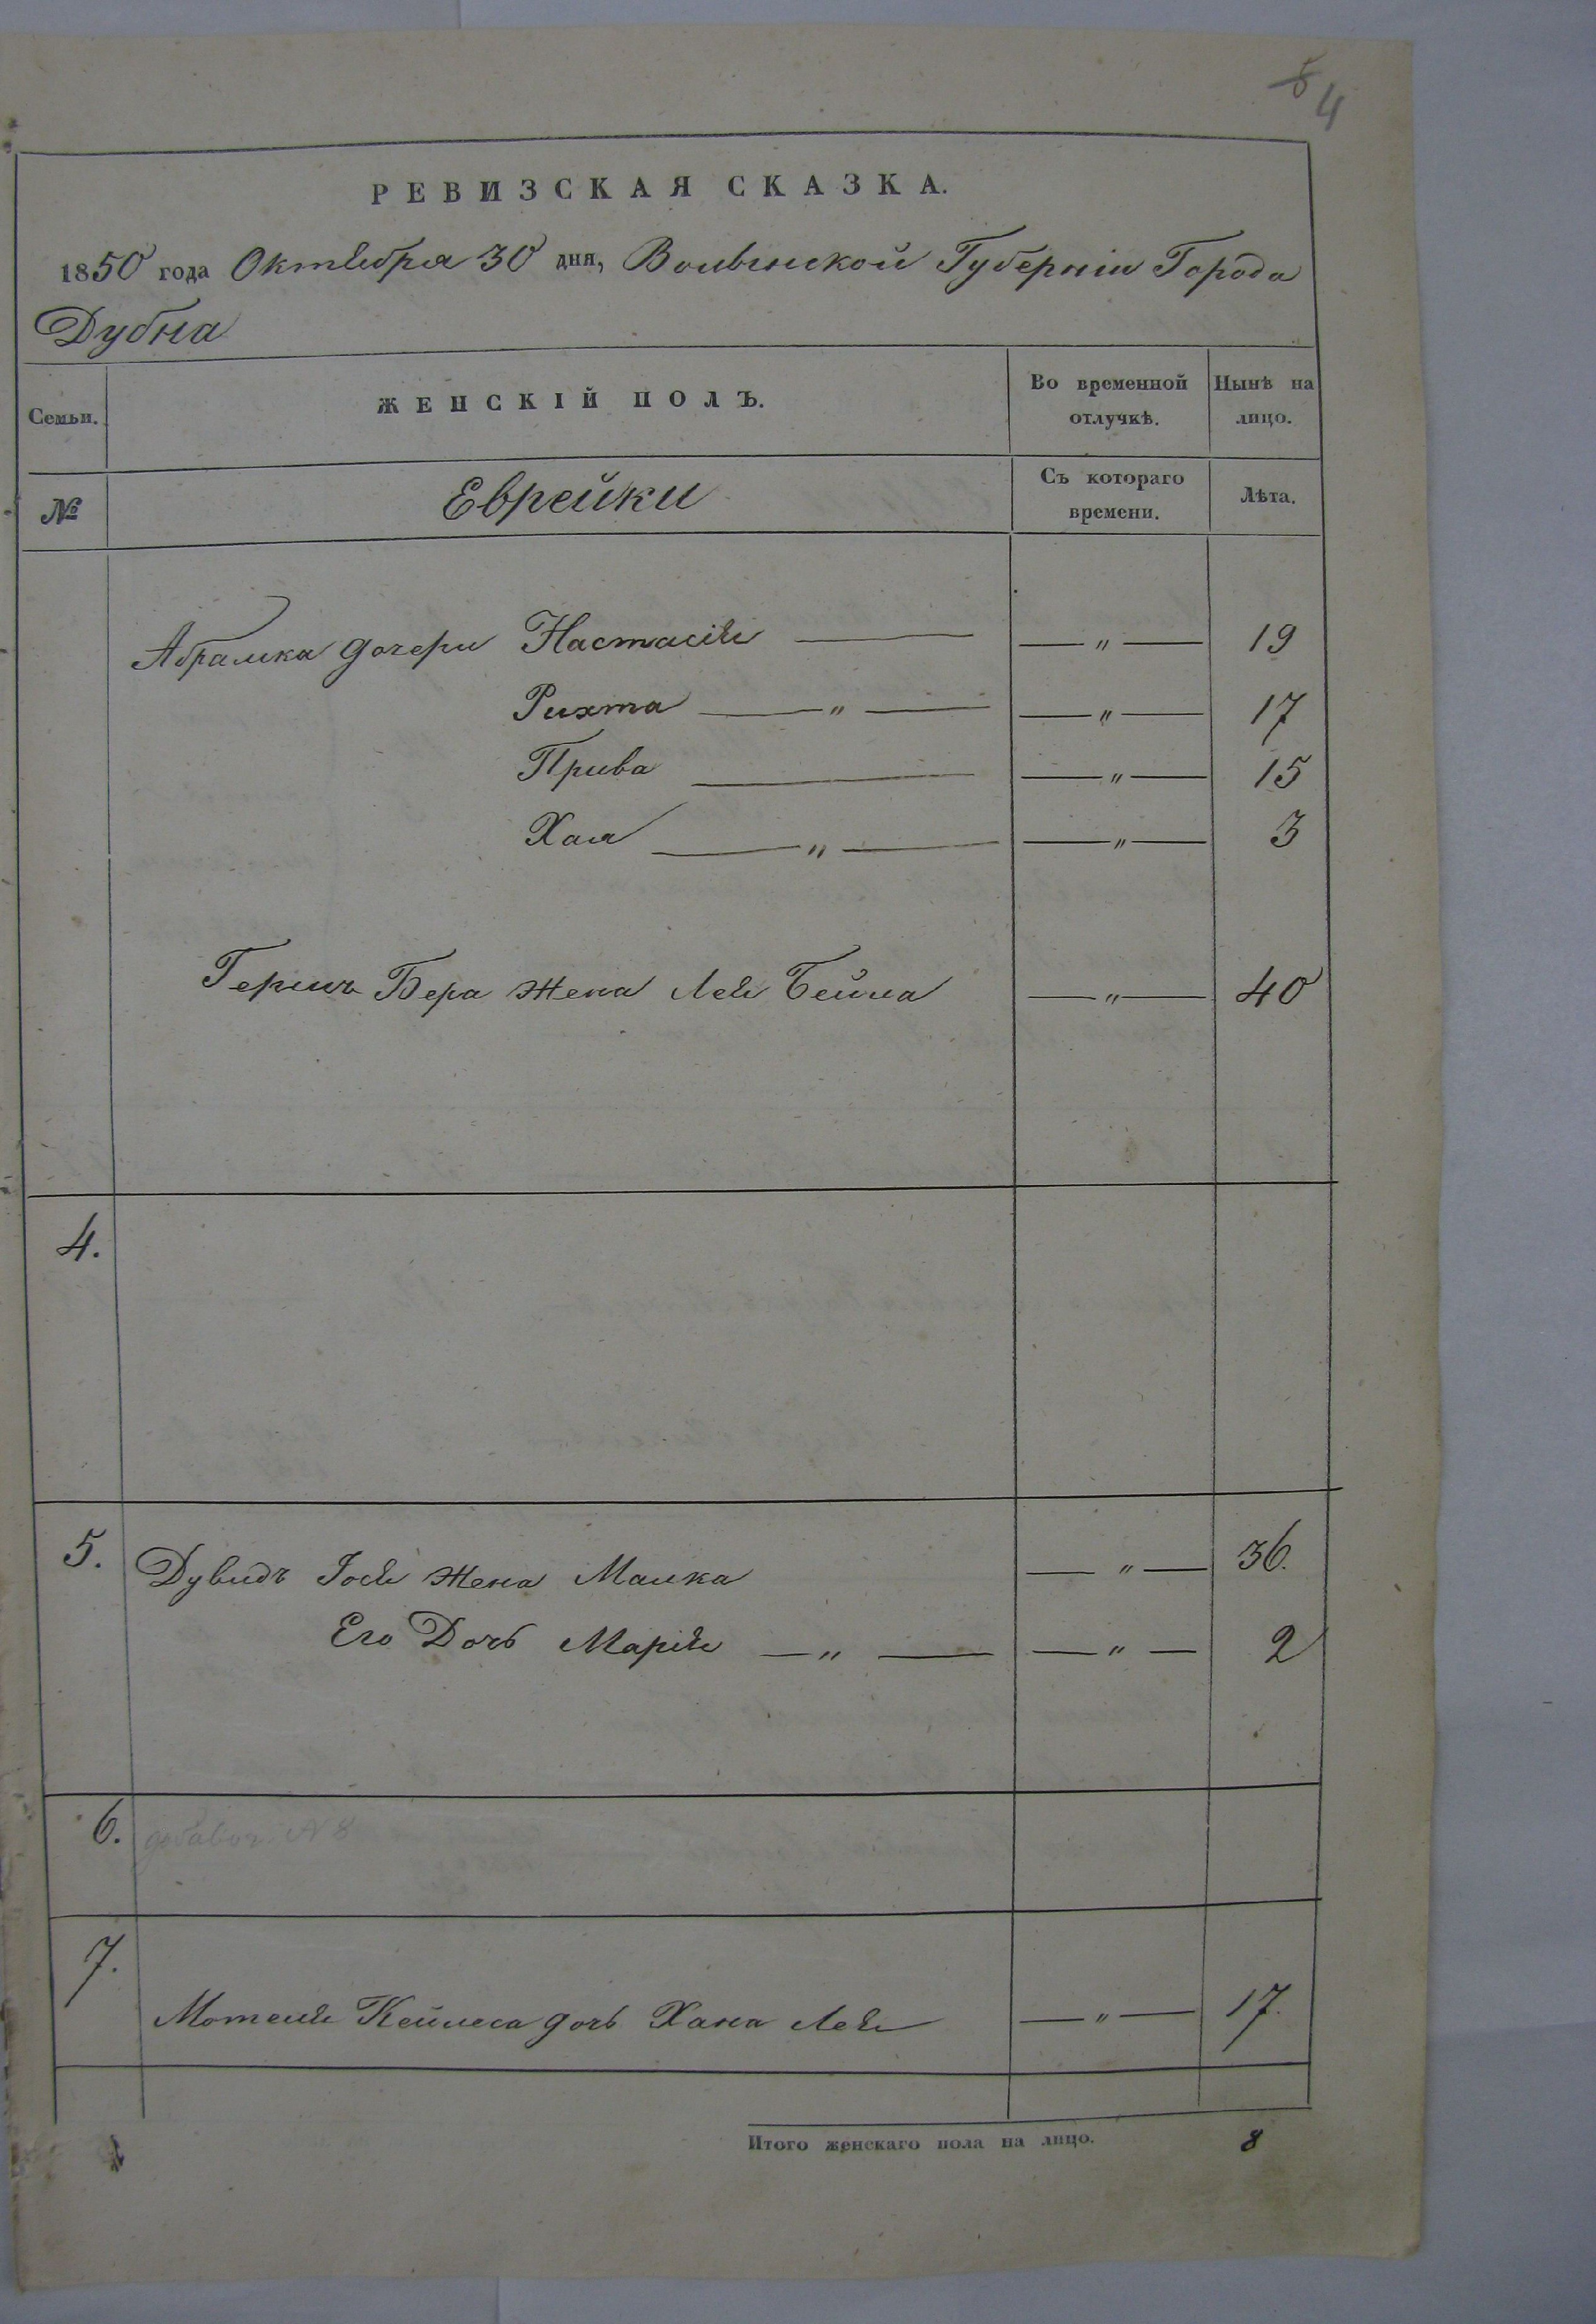 5 4
РЕВИЗСКАЯ СКАЗКА.
1850 года Октября 30 дня, Волынской Губерніи Города
Дубна
Семьи. ЖЕНСКІЙ ПОЛЪ. Во временной отлучкѣ. Нынѣ на лицо.
№ Еврейки Съ котораго времени. Лѣта.
Абрамка дочери Настасія — — " — 19
Рихта — " — — " — 17
Прива — — " — 15
Хая — " — — " — 3
Гершъ Бера жена Лея Бейла — " — 40
4.
5. Дувидъ Іося жена Малка — " — 36.
Его Дочь Марія — " — — " — 2
6. добавоч. N 8
7.
Мотеля Кейлеса дочь Хана Лея — " — 17.
Итого женскаго пола на лицо. 8